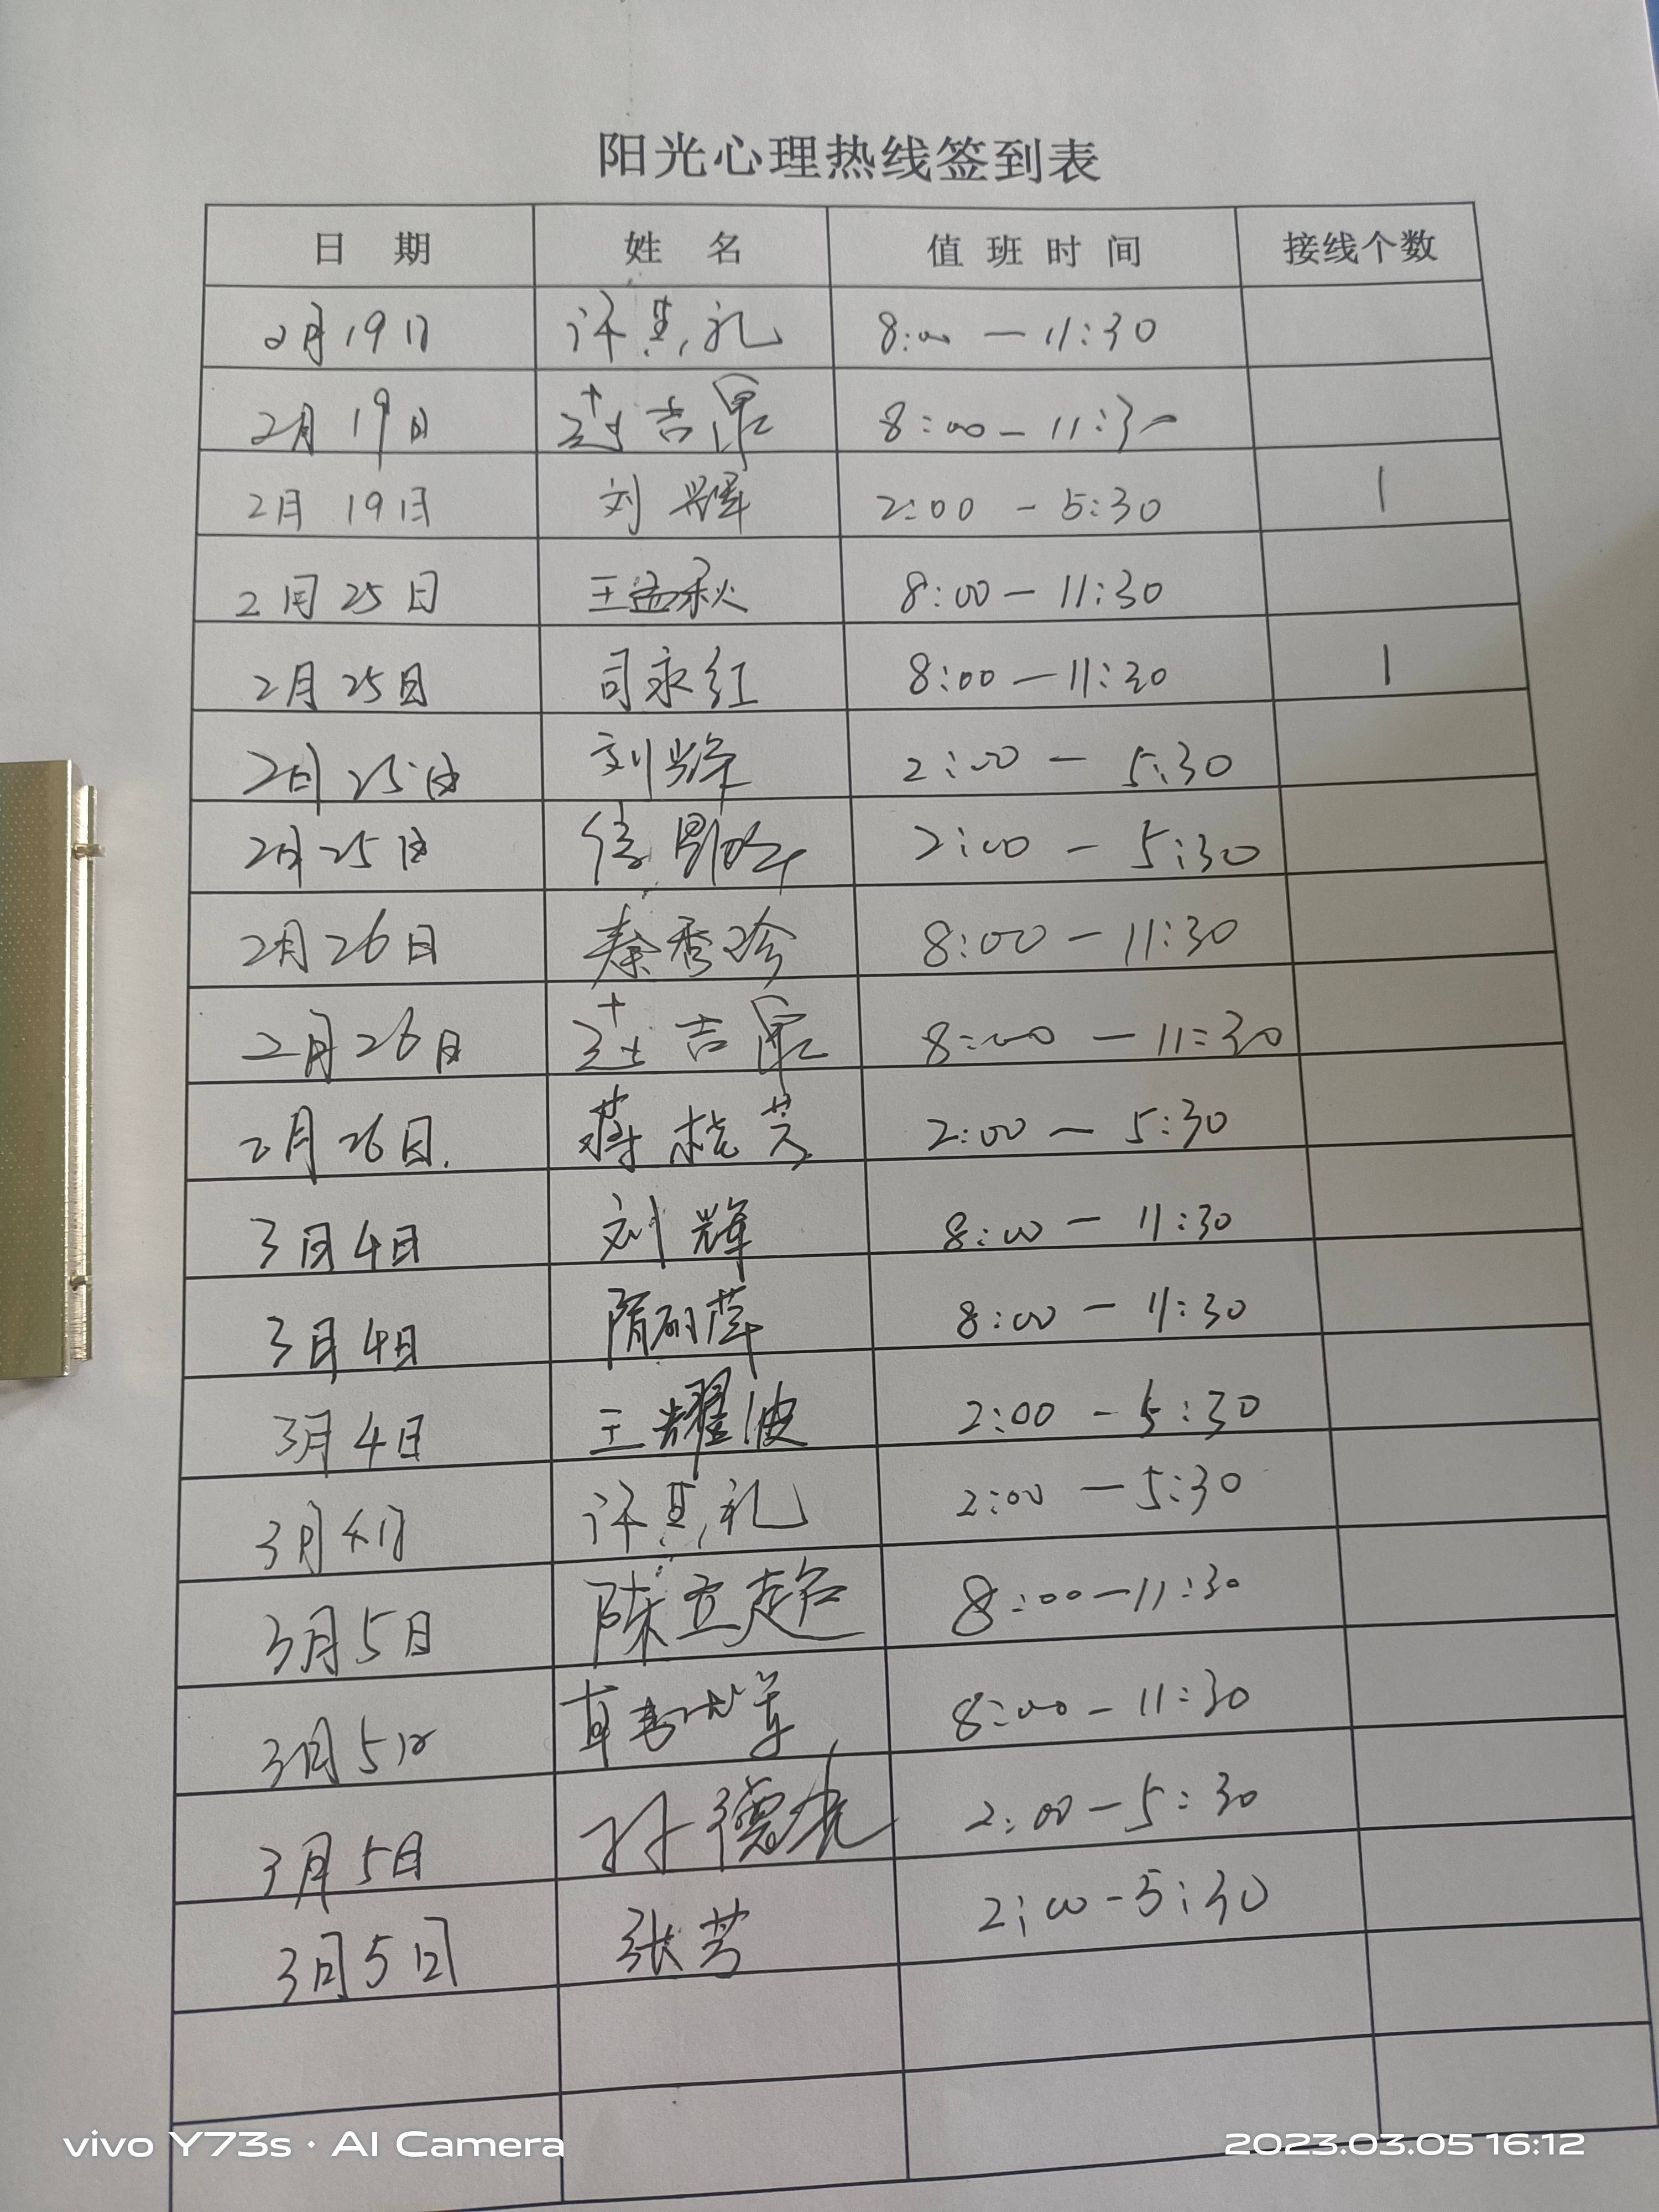 阳光心理热线签到表
日 期 姓 名 值 班 时 间 接线个数
2月19日 许其礼 8:00 — 11:30
2月19日 赵吉 8:00 — 11:30
2月19日 刘辉 2:00 - 5:30 1
2月25日 王孟秋 8:00 — 11:30
2月25日 司永红 8:00 — 11:30 1
2月25日 刘辉 2:00 — 5:30
2月25日 2:00 — 5:30
2月26日 秦秀珍 8:00 — 11:30
2月26日 赵吉 8:00 — 11:30
2月26日. 蒋桂芝 2:00 — 5:30
3月4日 刘辉 8:00 — 11:30
3月4日 隋丽萍 8:00 — 11:30
3月4日 王耀波 2:00 - 5:30
3月4日 许其礼 2:00 — 5:30
3月5日 陈立超 8:00 — 11:30
3月5日 8:00 - 11:30
3月5日 孙德 2:00 — 5:30
3月5日 张芳 2:00 - 5:30
vivo Y73s · AI Camera 2023.03.05 16:12